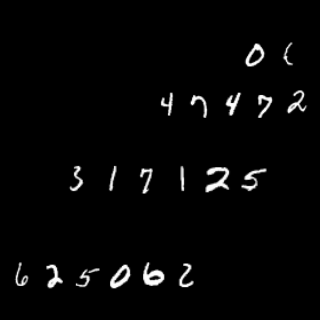 0
4 7 4 7 2
3 1 7 1 2 5
6 2 5 0 6 2